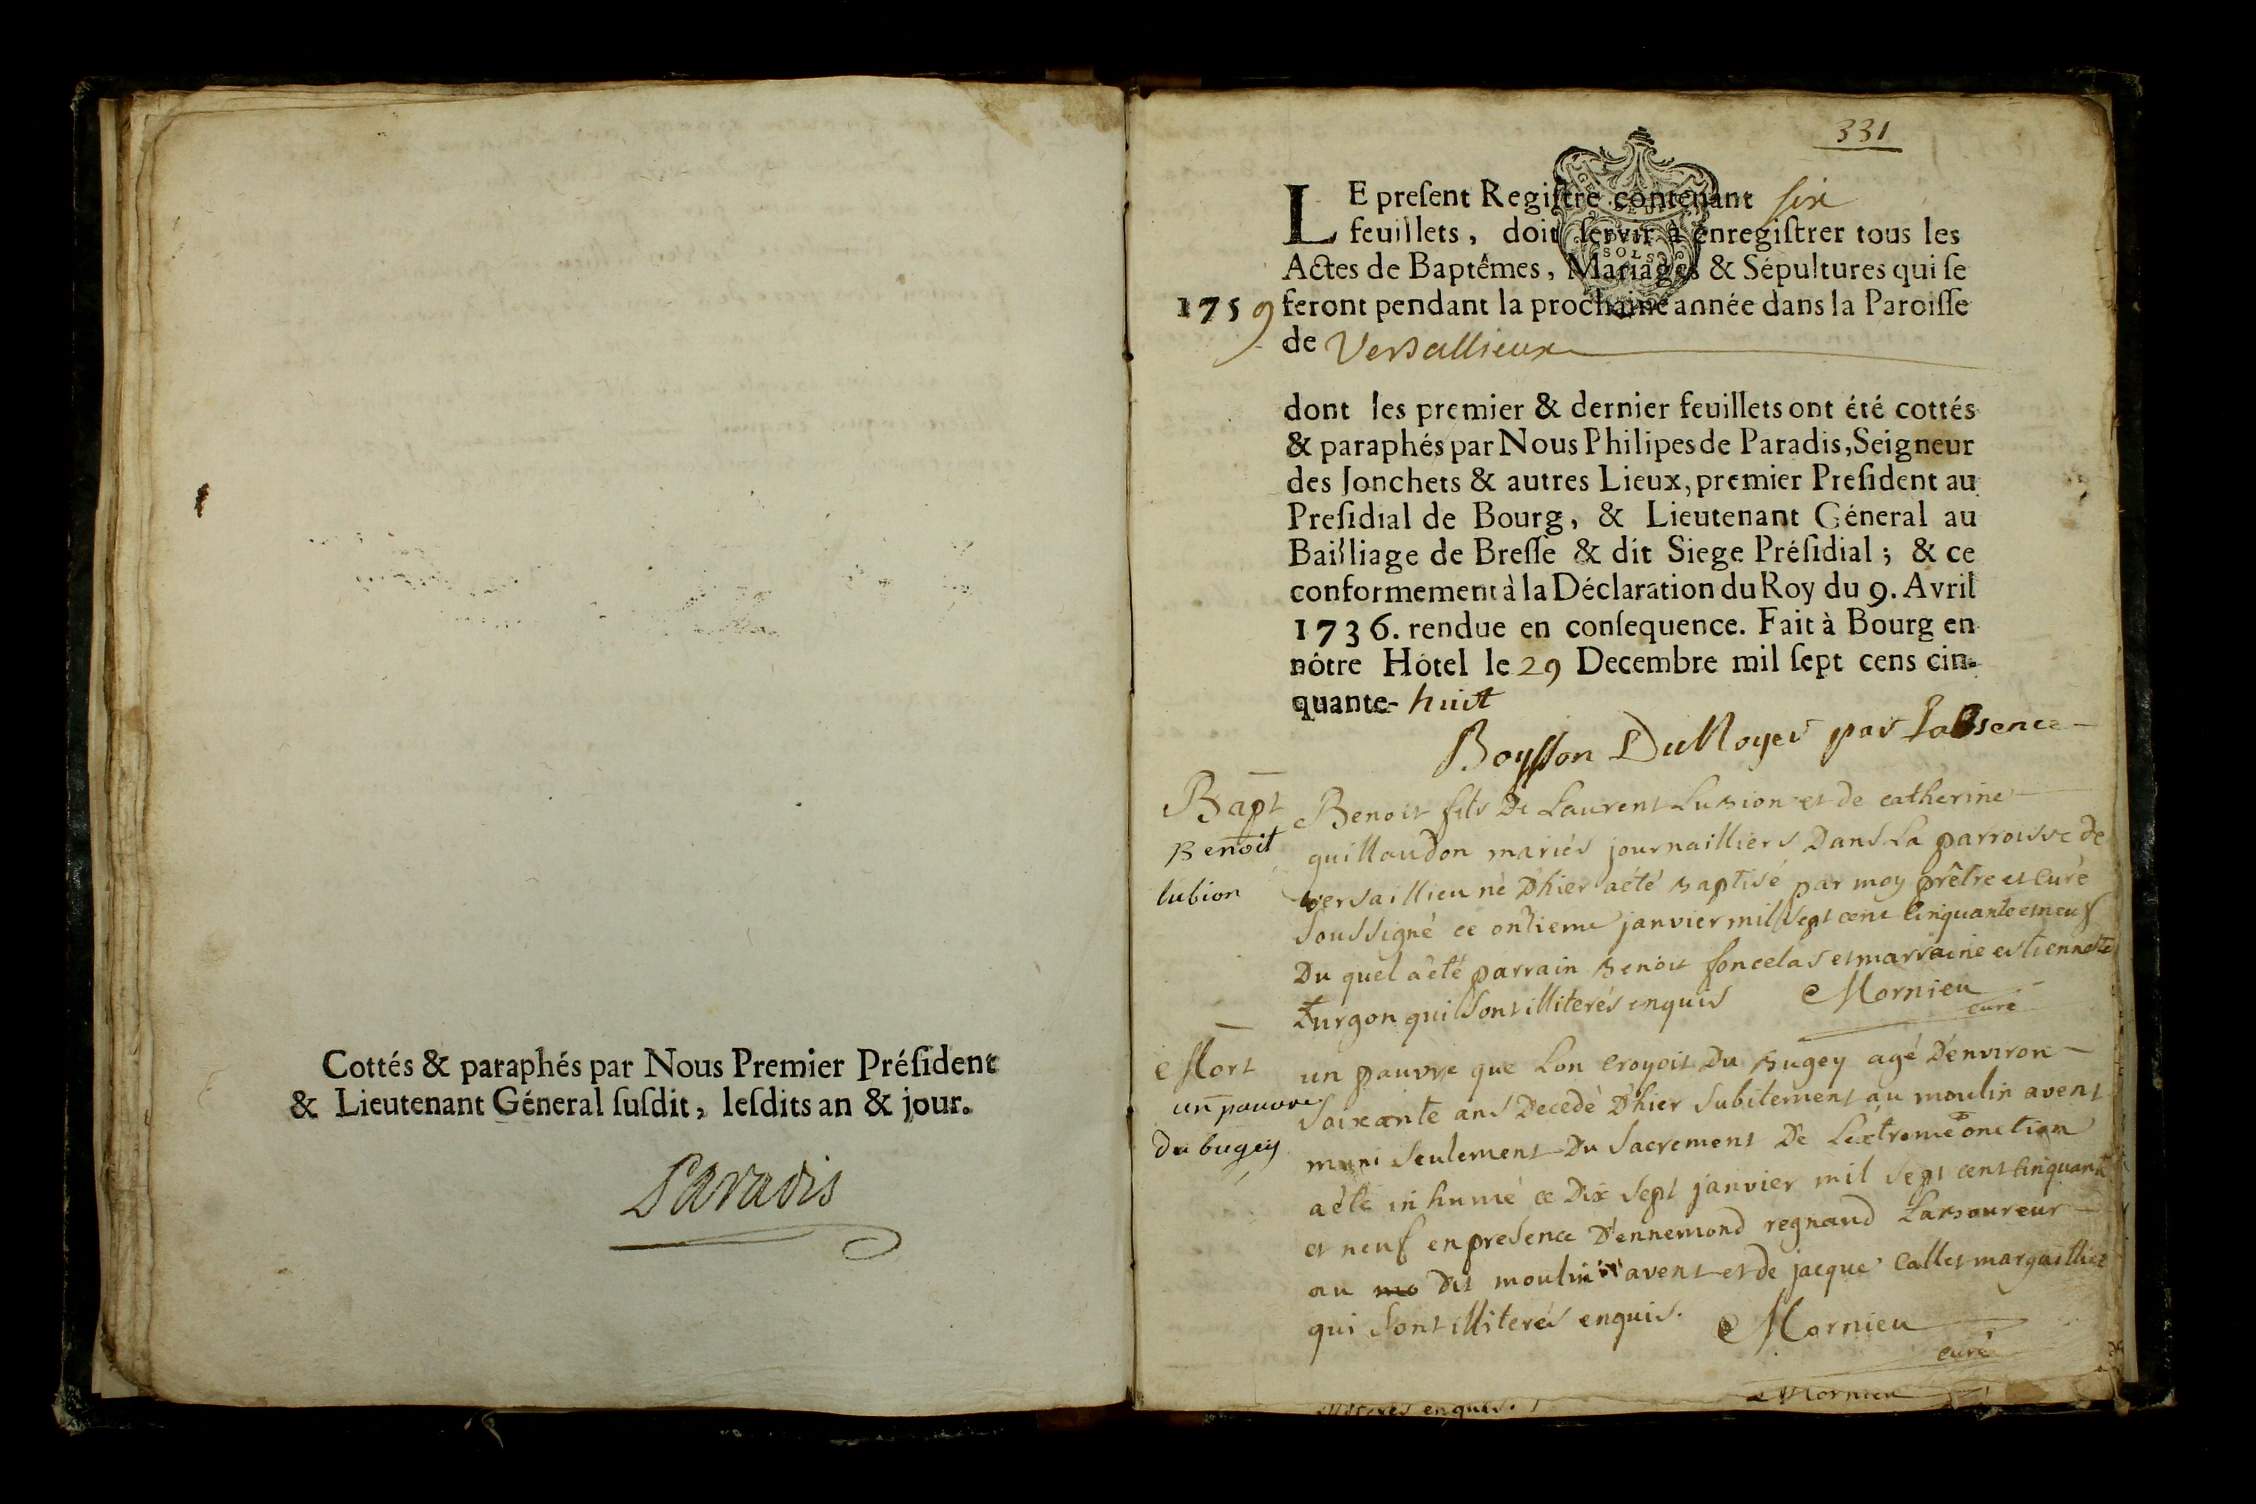 Cottés & paraphés par Nous Premier Préſident
& Lieutenant Géneral ſuſdit, leſdits an & jour.
Paradis
331
LE preſent Regiſtre contenant six
feuillets, doit ſervir à enregiſtrer tous les
Actes de Baptêmes, Mariages & Sépultures qui ſe
1759 feront pendant la prochaine année dans la Paroiſſe
de Versallieux
dont les premier & dernier feuillets ont été cottés
& paraphés par Nous Philipes de Paradis, Seigneur
des Jonchets & autres Lieux, premier Preſident au
Preſidial de Bourg, & Lieutenant Géneral au
Bailliage de Breſſe & dit Siege Préſidial; & ce
conformement à la Déclaration du Roy du 9. Avril
1736. rendue en conſequence. Fait à Bourg en
nôtre Hôtel le 29 Decembre mil ſept cens cin-
quante- huit
Boysson DuNoyer par Labsence
Bapt
Benoit
lubion
Benoit fils De Laurent Lubion et de catherine
guillaudon mariés journailliers Dans La parroisse de
versaillieu né D'hier aété Baptisé par moy prêtre et Curé
soussigné ce onzieme janvier mil sept cent Cinquante et neuf
Du quel a été parrain Benoit foncelas et marraine estiennette
turgon qui sont illiterés enquis Mornieu
curé
Mort
un pauvre
du bugey
un pauvre que Lon Croyoit Du Bugey agé D'environ
soixante ans Decedé D'hier subitement au moulin avent
muni seulement Du sacrement De Lextreme onction
aété inhumé ce Dix sept janvier mil sept cent Cinquante
et neuf en presence D'ennemond regnaud Laboureur
au mo Dit moulin avent et de jacque Callet marguillier
qui sont illiterés enquis. Mornieu
curé
illiterés enquis. Mornieu